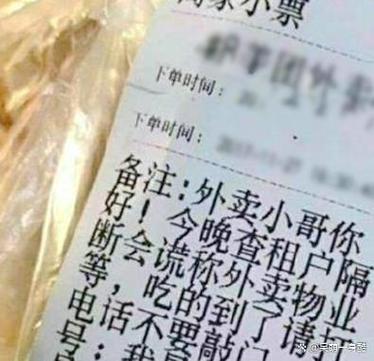 小票
下单时间：
下单时间：
备注：外卖小哥你
好！今晚查租户隔
断会谎称外卖物业
等，吃的到了请
电话不要敲门
号：我